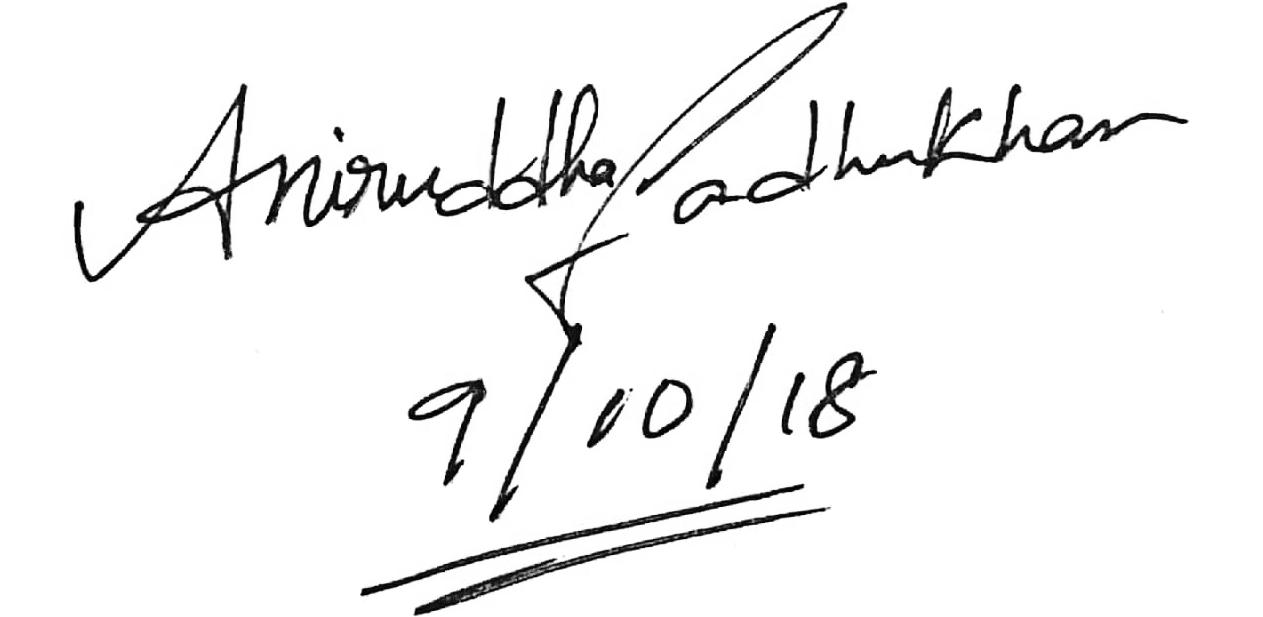 Aniruddha Sadhukhan
9/10/18